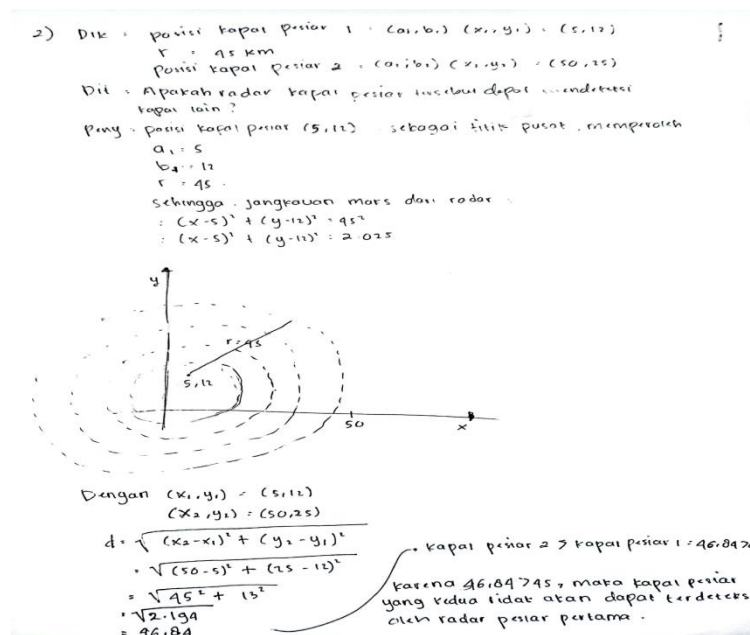 2) Dik : posisi kapal pesiar 1 : (a₁, b₁) (x₁, y₁) : (5,12)
r : 45 km
Posisi kapal pesiar 2 : (a₁, b₁) (x₁, y₂) : (50, 25)
Dit : Apakah radar kapal pesiar tersebut dapat mendeteksi
kapal lain ?
Peny : posisi kapal pesiar (5,12) sebagai titik pusat, memperoleh
a₁ = 5
b₁ = 12
r = 45
sehingga jangkauan maks dari radar
: (x-5)² + (y-12)² = 45²
: (x-5)² + (y-12)² = 2.025
y
r = 45
5,12
50
x
Dengan (x₁, y₁) = (5,12)
(x₂, y₂) = (50,25)
d = √(x₂-x₁)² + (y₂-y₁)²
= √(50-5)² + (25-12)²
= √45² + 13²
= √2.194
= 46.84
. kapal pesiar 2 > kapal pesiar 1 = 46.847
karena 46.84 > 45, maka kapal pesiar
yang kedua tidak akan dapat terdeteksi
oleh radar pesiar pertama.